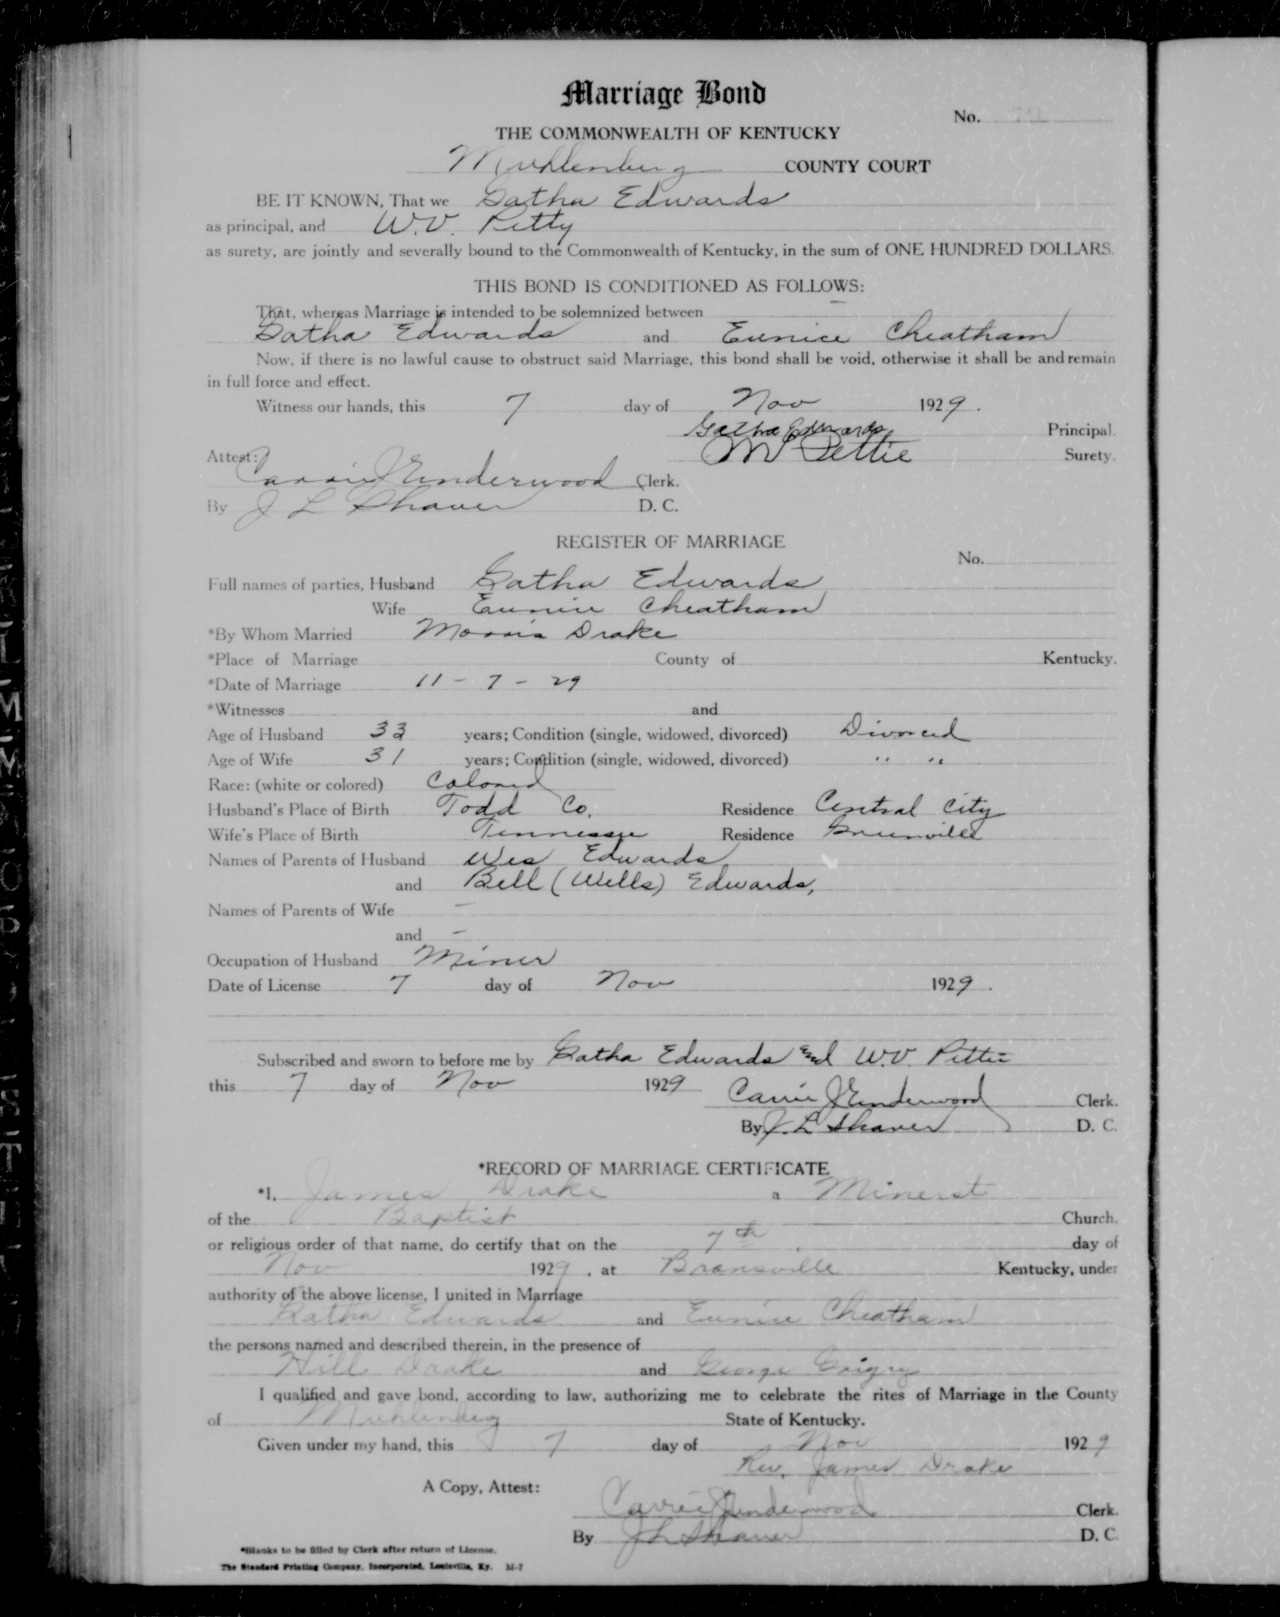 Marriage Bond
No.
THE COMMONWEALTH OF KENTUCKY
Muhlenberg COUNTY COURT
BE IT KNOWN, That we Gatha Edwards
as principal, and W.V. Petty
as surety, are jointly and severally bound to the Commonwealth of Kentucky, in the sum of ONE HUNDRED DOLLARS.
THIS BOND IS CONDITIONED AS FOLLOWS:
That, whereas Marriage is intended to be solemnized between
Gatha Edwards and Eunice Cheatham
Now, if there is no lawful cause to obstruct said Marriage, this bond shall be void, otherwise it shall be and remain
in full force and effect.
Witness our hands, this 7 day of Nov 1929.
Gatha Edwards Principal.
Pettie Surety.
Attest: Carrie J Underwood Clerk.
By J L Shaver D. C.
REGISTER OF MARRIAGE
No.
Full names of parties, Husband Gatha Edwards
Wife Eunice Cheatham
*By Whom Married Morris Drake
*Place of Marriage County of Kentucky.
*Date of Marriage 11 - 7 - 29
*Witnesses and
Age of Husband 33 years; Condition (single, widowed, divorced) Divorced
Age of Wife 31 years; Condition (single, widowed, divorced) " "
Race: (white or colored) Colored
Husband's Place of Birth Todd Co. Residence Central City
Wife's Place of Birth Tennessee Residence Greenville
Names of Parents of Husband Wes Edwards
and Bell (Wells) Edwards,
Names of Parents of Wife -
and -
Occupation of Husband Miner
Date of License 7 day of Nov 1929.
Subscribed and sworn to before me by Gatha Edwards and W.V. Pettie
this 7 day of Nov 1929 Carrie J Underwood Clerk.
By J. L Shaver D. C.
*RECORD OF MARRIAGE CERTIFICATE
*I, James Drake a Minerst
of the Baptist Church,
or religious order of that name, do certify that on the 7th day of
Nov 1929, at Bransville Kentucky, under
authority of the above license, I united in Marriage
Gatha Edwards and Eunice Cheatham
the persons named and described therein, in the presence of
Hill Drake and George
I qualified and gave bond, according to law, authorizing me to celebrate the rites of Marriage in the County
of Muhlenberg State of Kentucky.
Given under my hand, this 7 day of Nov 1929
Rev. James Drake
A Copy, Attest:
Carrie J Underwood Clerk.
By J L Shaver D. C.
*Blanks to be filled by Clerk after return of License.
The Standard Printing Company, Incorporated, Louisville, Ky. M-7